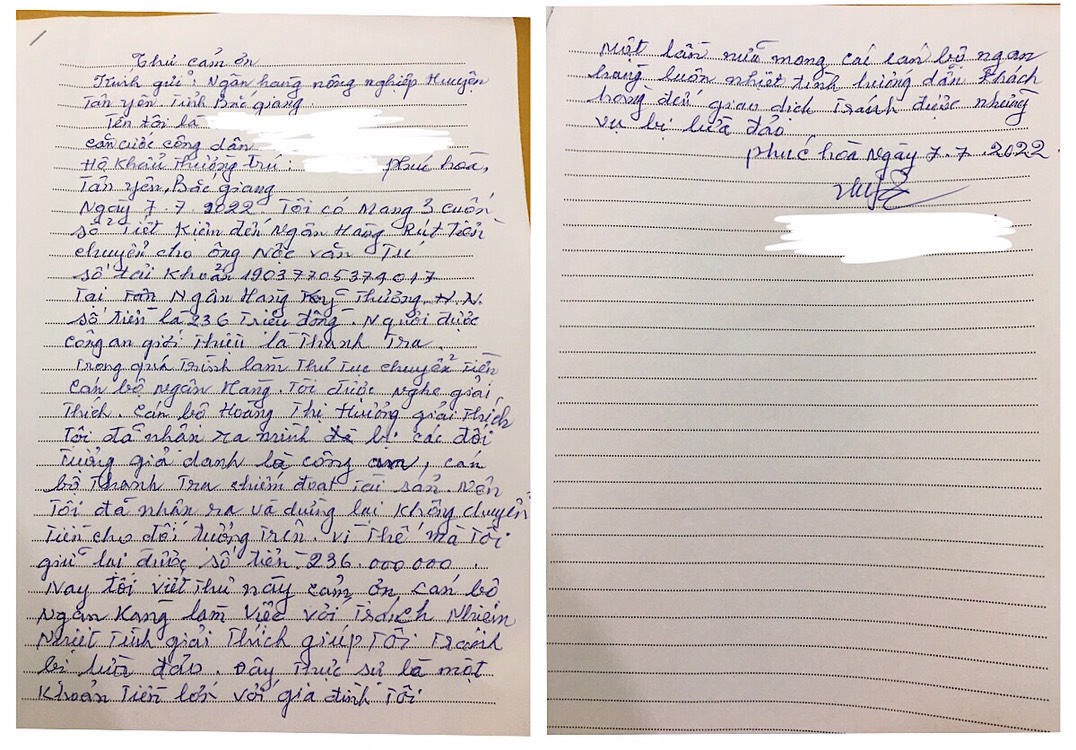 Thư cảm ơn
Kính gửi: Ngân hàng nông nghiệp Huyện
Tân yên Tỉnh Bắc giang.
Tên tôi là
căn cước công dân
Hộ Khẩu Thường trú: phúc hoà,
Tân yên, Bắc giang
Ngày 7.7.2022. Tôi có mang 3 cuốn
sổ Tiết Kiệm đến Ngân Hàng Rút Tiền
chuyển cho ông Nộc văn Tú
số tài khoản 19037705379017
Tại Tân Ngân Hàng Kỹ Thương. H.N.
số tiền là 236 Triệu đồng. Người được
công an giới Thiệu là Thanh Tra.
Trong quá Trình làm Thủ Tục chuyển Tiền
Cán bộ Ngân Hàng. Tôi được nghe giải
Thích. Cán bộ Hoàng Thị Hương giải Thích
Tôi đã nhận ra mình đã bị các đối
Tượng giả danh là công an, cán
bộ Thanh Tra chiếm đoạt Tài sản. Nên
Tôi đã nhận ra và dừng lại không chuyển
Tiền cho đối Tượng Trên. vì Thế mà Tôi
giữ lại được số tiền. 236.000.000.
Nay tôi viết Thư này cảm ơn, Cán bộ
Ngân Hàng làm việc với Trách Nhiệm
Nhiệt Tình giải Thích giúp Tôi Tránh
bị lừa đảo. Đây, Thực sự là một
Khoản Tiền lớn với gia đình Tôi
Một lần nữa mong các cán bộ ngân
hàng luôn nhiệt tình hướng dẫn Khách
hàng đến giao dịch Tránh được những
vụ bị lừa đảo
phúc hoà Ngày 7.7.2022